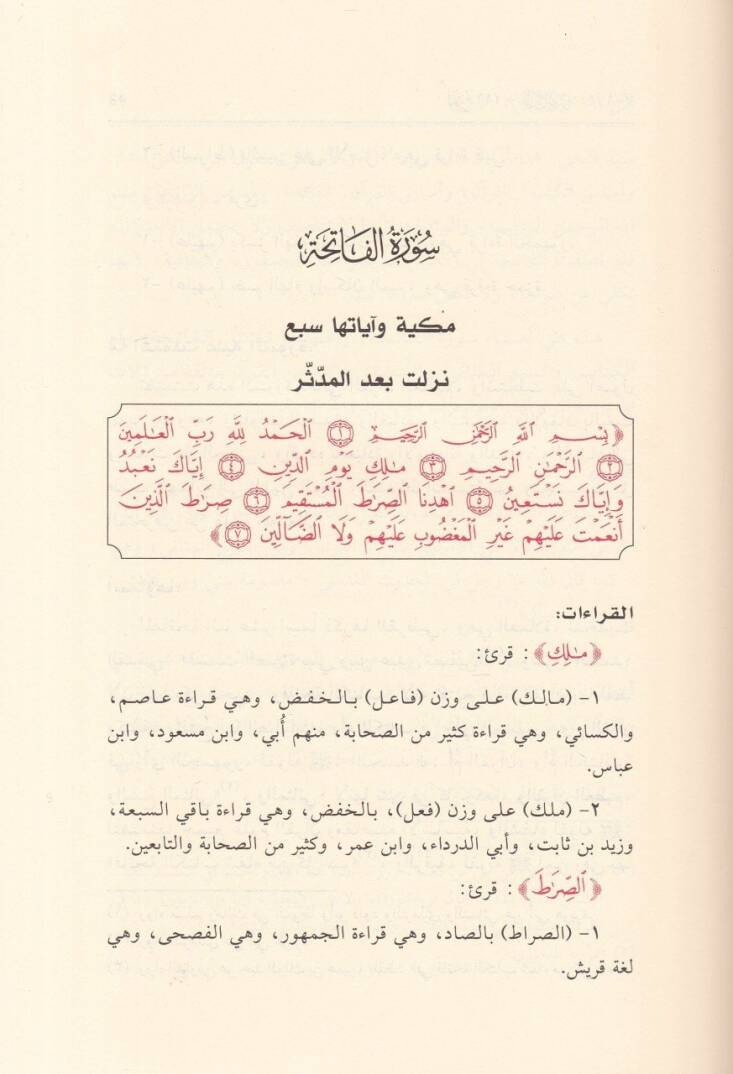 سُورَةُ الفَاتِحَةِ
مكية وآياتها سبع
نزلت بعد المدّثّر
﴿بِسْمِ اللَّهِ الرَّحْمَٰنِ الرَّحِيمِ ۝١ الْحَمْدُ لِلَّهِ رَبِّ الْعَالَمِينَ
۝٢ الرَّحْمَٰنِ الرَّحِيمِ ۝٣ مَالِكِ يَوْمِ الدِّينِ ۝٤ إِيَّاكَ نَعْبُدُ
وَإِيَّاكَ نَسْتَعِينُ ۝٥ اهْدِنَا الصِّرَاطَ الْمُسْتَقِيمَ ۝٦ صِرَاطَ الَّذِينَ
أَنْعَمْتَ عَلَيْهِمْ غَيْرِ الْمَغْضُوبِ عَلَيْهِمْ وَلَا الضَّالِّينَ ۝٧﴾
القراءات:
﴿مَالِكِ﴾: قرئ:
١- (مالك) على وزن (فاعل) بالخفض، وهي قراءة عاصم،
والكسائي، وهي قراءة كثير من الصحابة، منهم أُبي، وابن مسعود، وابن
عباس.
٢- (ملك) على وزن (فعل)، بالخفض، وهي قراءة باقي السبعة،
وزيد بن ثابت، وأبي الدرداء، وابن عمر، وكثير من الصحابة والتابعين.
﴿الصِّرَاطَ﴾: قرئ:
١- (الصراط) بالصاد، وهي قراءة الجمهور، وهي الفصحى، وهي
لغة قريش.